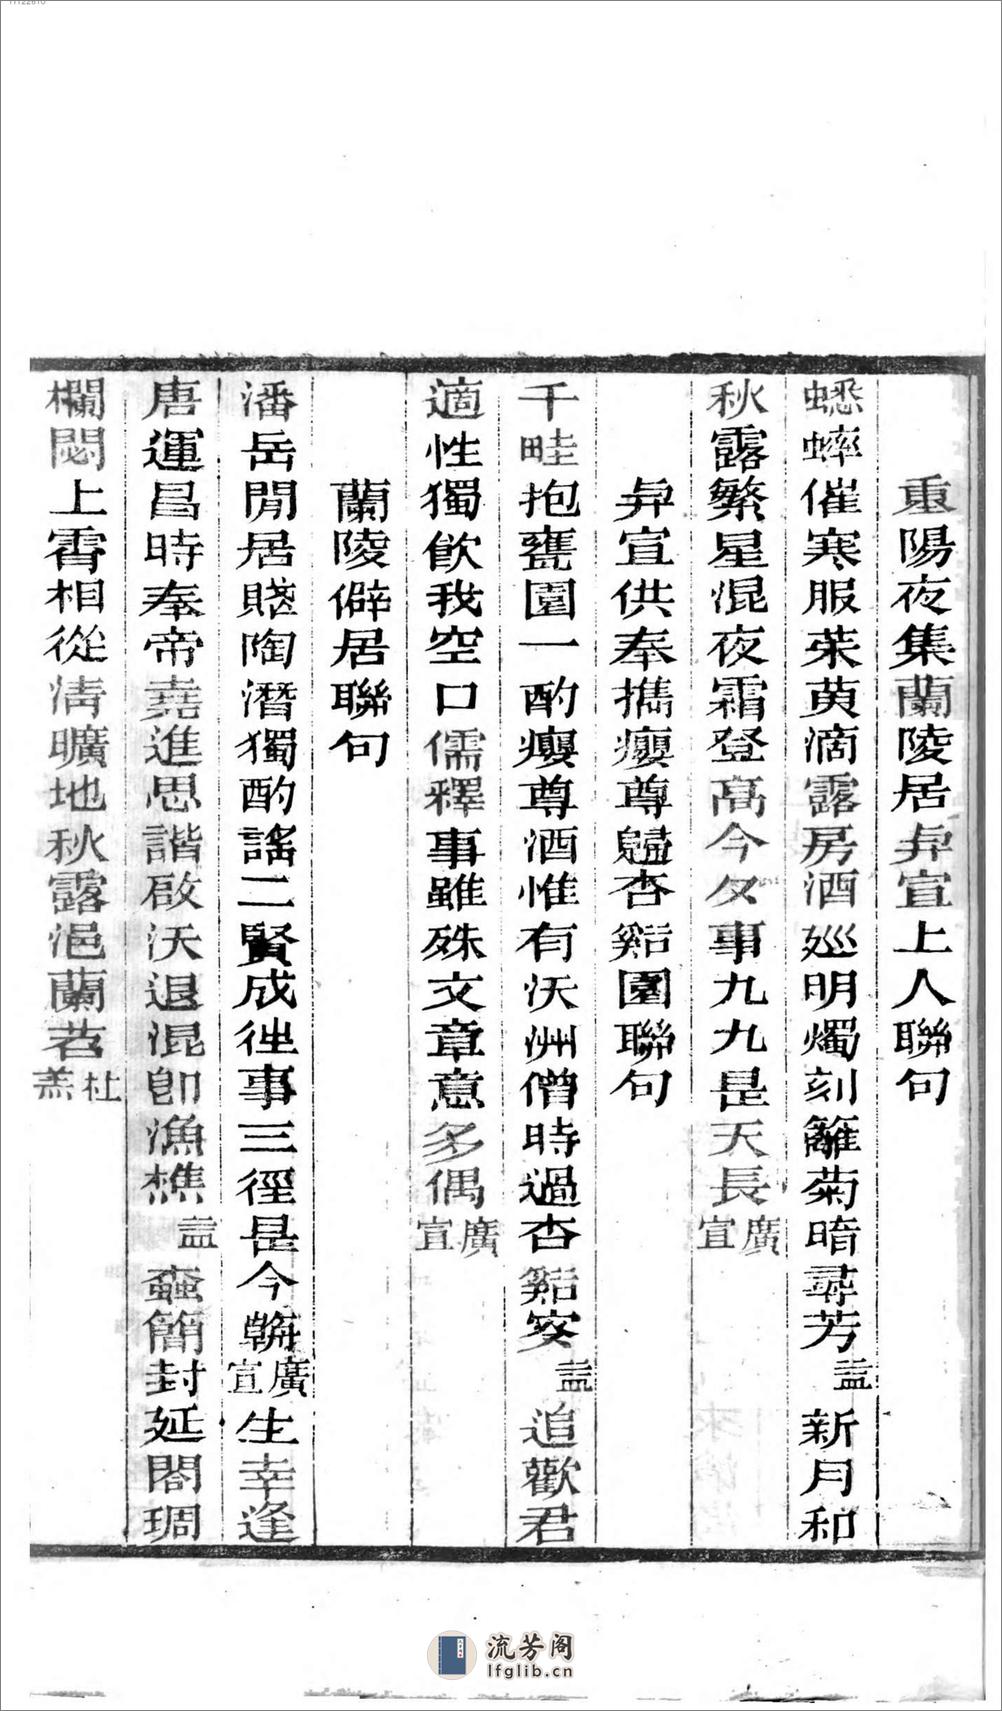 重陽夜集蘭陵居與宣上人聯句
蟋蟀催寒服茱萸滴露房酒巡明燭刻籬菊暗尋芳益新月和
秋露繁星混夜霜登高今夕事九九是天長廣宣
與宣供奉攜癭尊歸杏谿園聯句
千畦抱甕園一酌癭尊酒惟有沃洲僧時過杏谿叟益追歡君
適性獨飲我空口儒釋事雖殊文章意多偶廣宣
蘭陵僻居聯句
潘岳閒居賤陶潛獨酌謠二賢成往事三徑是今朝廣宣生幸逢
唐運昌時奉帝堯進思諧啟沃退混卽漁樵益蠹簡封延閣琱
欄閟上霄相從清曠地秋露浥蘭苕杜羔
流芳阁
lfglib.cn